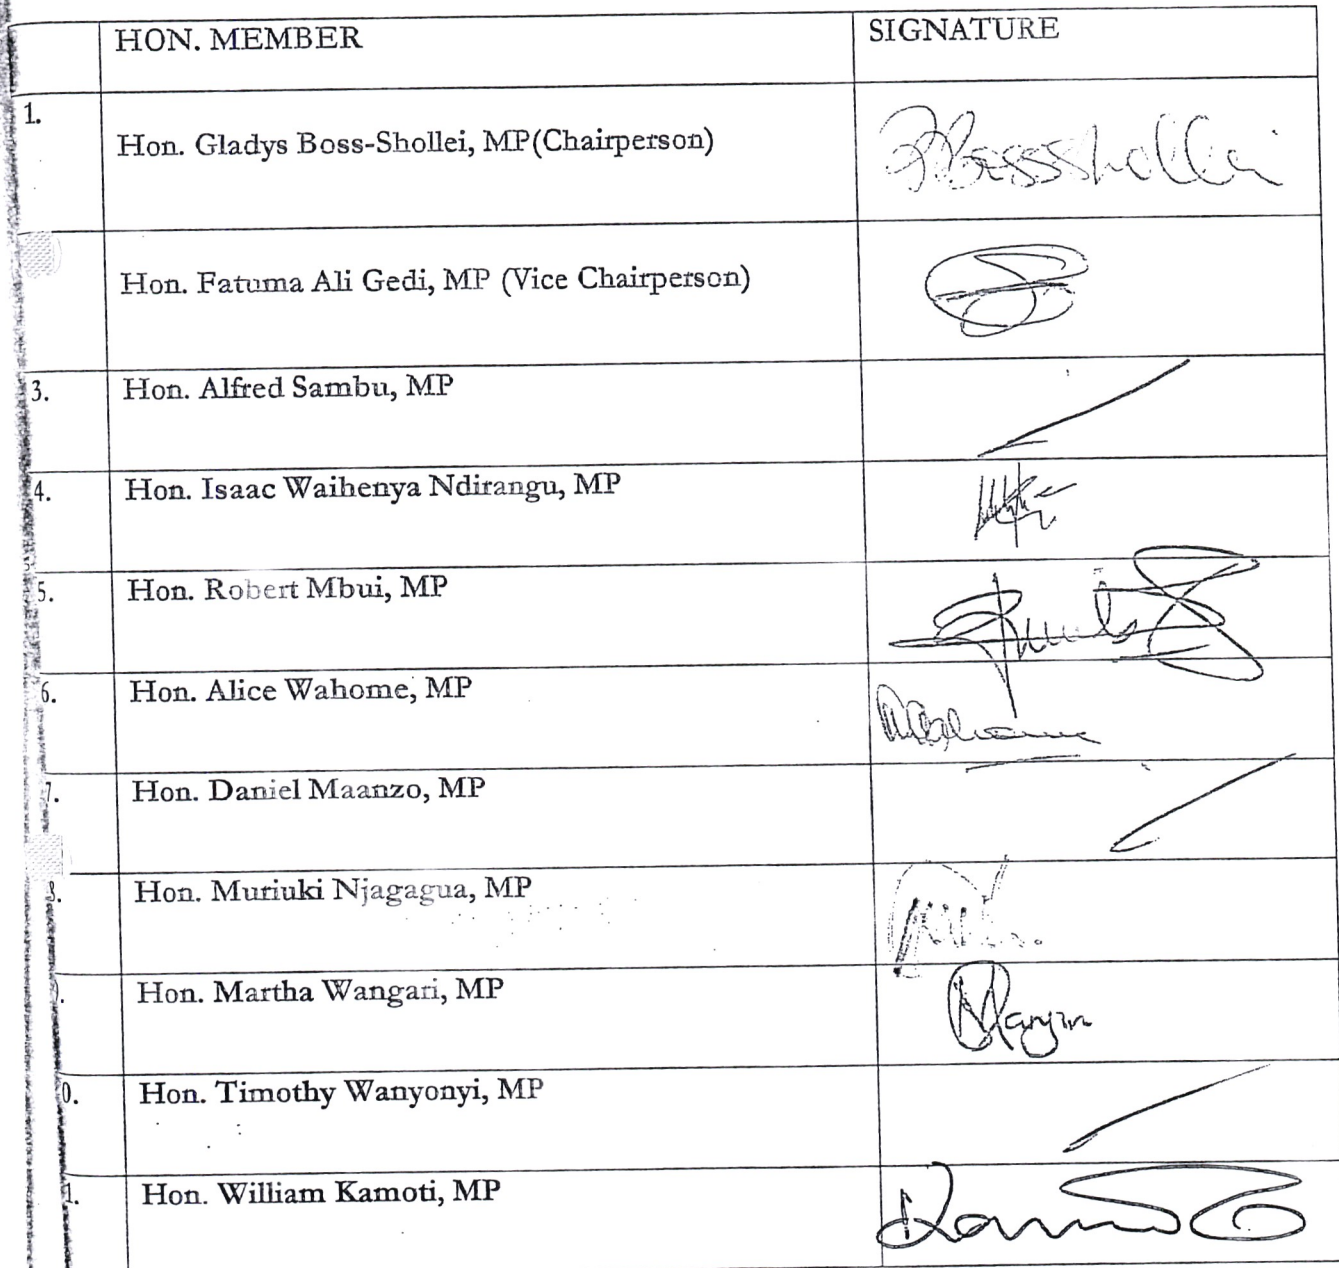 HON. MEMBER SIGNATURE
1. Hon. Gladys Boss-Shollei, MP(Chairperson)
Hon. Fatuma Ali Gedi, MP (Vice Chairperson)
3. Hon. Alfred Sambu, MP
4. Hon. Isaac Waihenya Ndirangu, MP
5. Hon. Robert Mbui, MP
6. Hon. Alice Wahome, MP
7. Hon. Daniel Maanzo, MP
8. Hon. Muriuki Njagagua, MP
Hon. Martha Wangari, MP
0. Hon. Timothy Wanyonyi, MP
1. Hon. William Kamoti, MP